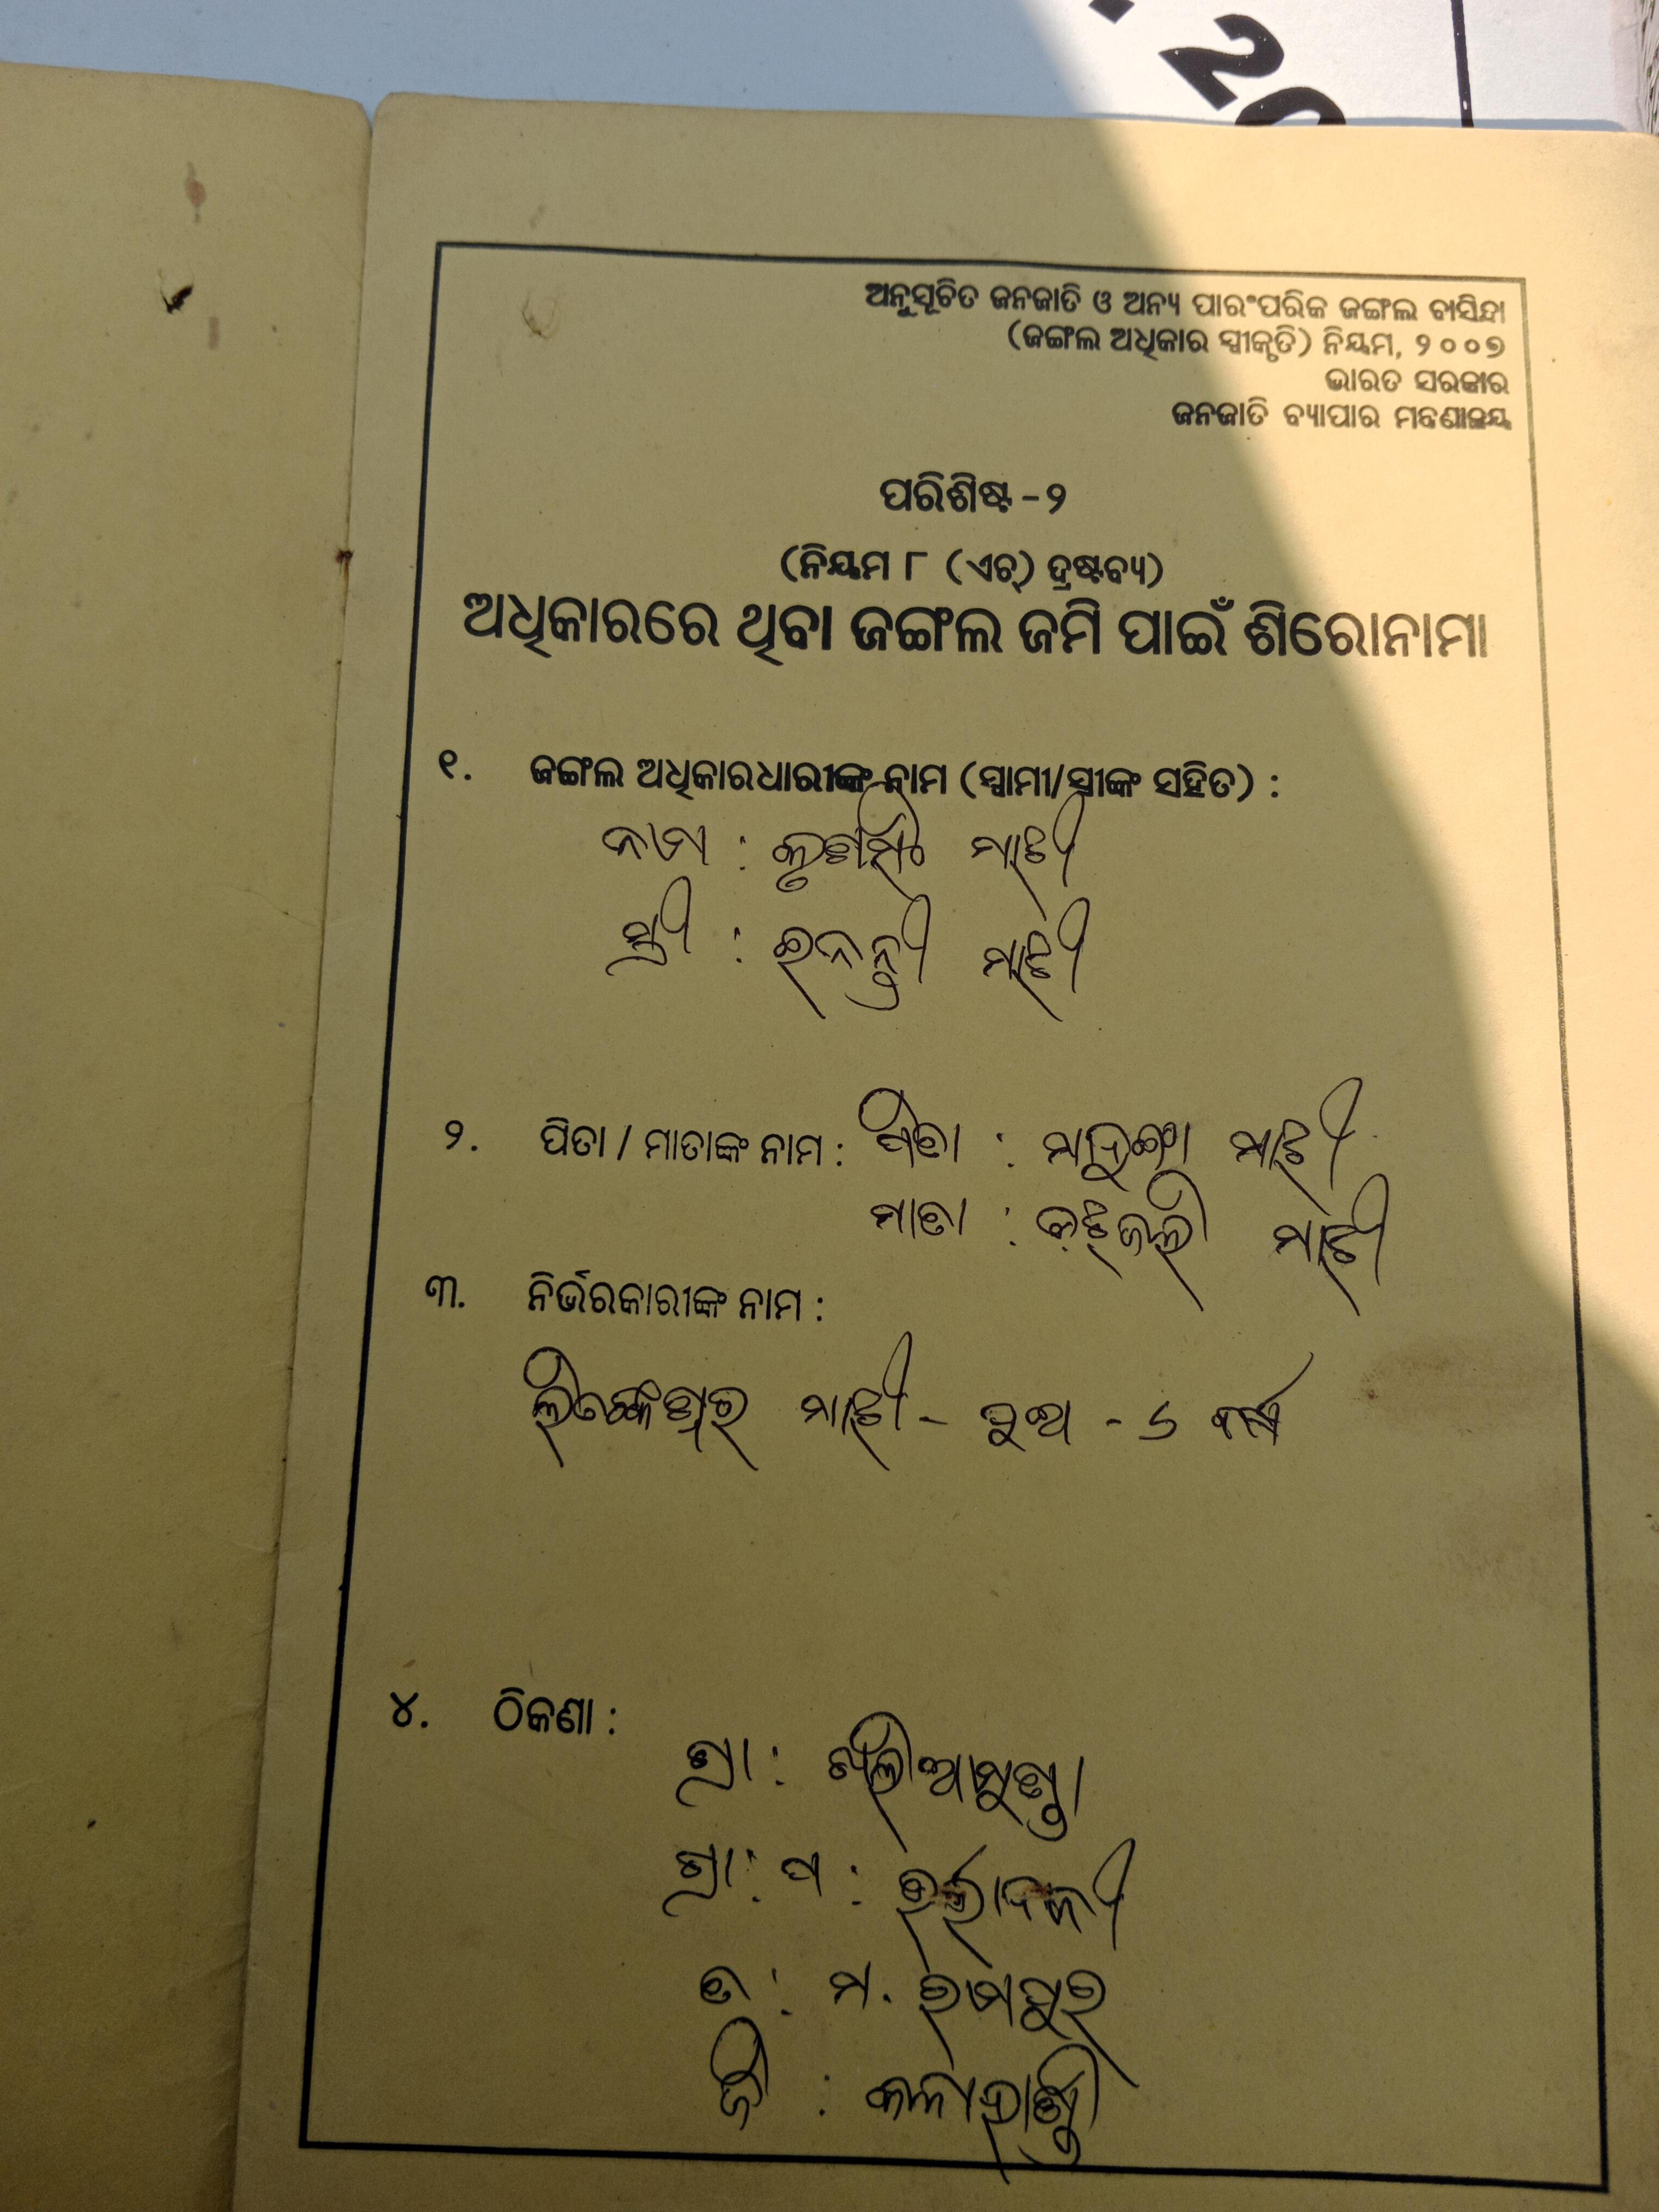 20
ଅନୁସୂଚିତ ଜନଜାତି ଓ ଅନ୍ୟ ପାରଂପରିକ ଜଙ୍ଗଲ ବାସିନ୍ଦା
(ଜଙ୍ଗଲ ଅଧିକାର ସ୍ୱୀକୃତି) ନିୟମ, ୨୦୦୭
ଭାରତ ସରକାର
ଜନଜାତି ବ୍ୟାପାର ମନ୍ତ୍ରଣାଳୟ
ପରିଶିଷ୍ଟ - ୨
(ନିୟମ ୮ (ଏଚ୍) ଦ୍ରଷ୍ଟବ୍ୟ)
ଅଧିକାରରେ ଥିବା ଜଙ୍ଗଲ ଜମି ପାଇଁ ଶିରୋନାମା
୧. ଜଙ୍ଗଲ ଅଧିକାରଧାରୀଙ୍କ ନାମ (ସ୍ୱାମୀ/ସ୍ତ୍ରୀଙ୍କ ସହିତ) :
ନାମ : ମାଝୀ
ସ୍ତ୍ରୀ : ମାଝୀ
୨. ପିତା / ମାତାଙ୍କ ନାମ : ପିତା : ମାଝୀ
ମାତା : ମାଝୀ
୩. ନିର୍ଭରକାରୀଙ୍କ ନାମ :
ମାଝୀ - ପୁଅ - ୬ ବର୍ଷ
୪. ଠିକଣା :
ଗ୍ରା :
ଗ୍ରା : ପ :
ତ : ମ. ରାମପୁର
ଜି : କଳାହାଣ୍ଡି